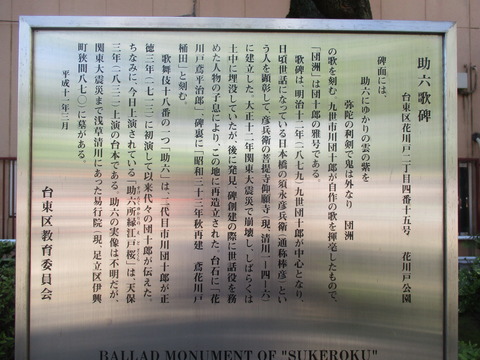 助六歌碑
台東区花川戸二丁目四番十五号　花川戸公園
碑面には、
助六にゆかりの雲の紫を
弥陀の利剣で鬼は外なり　団洲
の歌を刻む。九世市川団十郎が自作の歌を揮毫したもので、
「団洲」は団十郎の雅号である。
歌碑は、明治十二年(一八七九)九世団十郎が中心となり、
日頃世話になっている日本橋の須永彦兵衛(通称棒彦)とい
う人を顕彰して、彦兵衛の菩提寺仰願寺(現、清川一ー四ー六)
に建立した。大正十二年関東大震災で崩壊し、しばらくは
土中に埋没していたが、後に発見、碑創建の際に世話役を務
めた人物の子息により、この地に再造立された。台石に「花
川戸鳶平治郎」、碑裏に「昭和三十三年秋再建　鳶花川戸
桶田」と刻む。
歌舞伎十八番の一つ「助六」は、二代目市川団十郎が正
徳三年(一七一三)に初演して以来代々の団十郎が伝えた。
ちなみに、今日上演されている「助六所縁江戸桜」は、天保
三年(一八三二)上演の台本である。助六の実像は不明だが、
関東大震災まで浅草清川にあった易行院(現、足立区伊興
町狭間八七〇)に墓がある。
平成十一年三月
台東区教育委員会
BALLAD MONUMENT OF "SUKEROKU"